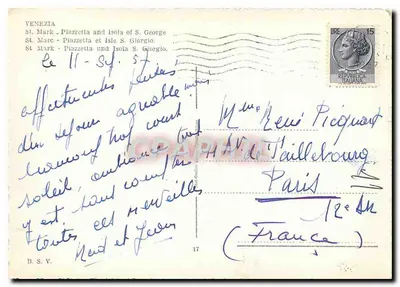 VENEZIA
St. Mark - Piazzetta and Isola of S. George
St. Marc - Piazzetta et Isle S. Giorgio
St. Mark - Piazzetta und Isola S. Giorgio.
le 11 - 57
affectueuses pensées
d'un séjour agréable mais
beaucoup trop court
soleil, ambiance tout
y est, sans compter
toutes ces merveilles
et
17
B. S. V.
15
REPUBBLICA
ITALIANA
Mme René Picquart
de Taillebourg
Paris
12e Arr
(France)